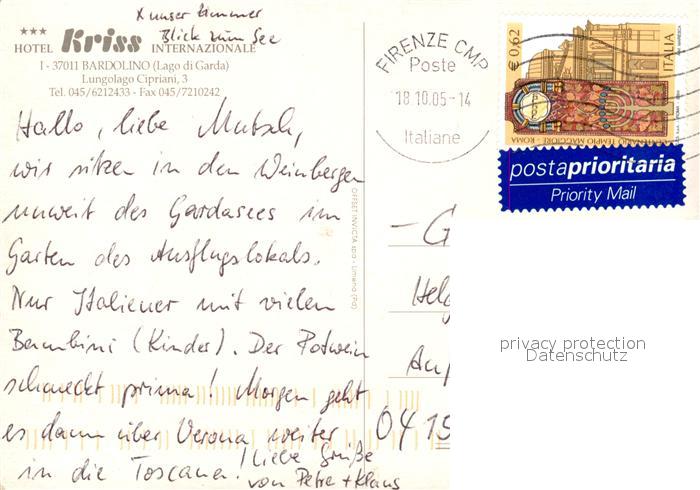 x unser Zimmer
Blick zum See
*** HOTEL Kriss INTERNAZIONALE
I - 37011 BARDOLINO (Lago di Garda)
Lungolago Cipriani, 3
Tel. 045/6212433 - Fax 045/7210242
Hallo, liebe Mutsch,
wir sitzen in den Weinbergen
unweit des Gardasees im
Garten des Ausflugslokals.
Nur Italiener mit vielen
Bambini (Kinder). Der Rotwein
schmeckt prima! Morgen geht
es dann über Verona weiter
in die Toscana! Liebe Grüße
von Petra + Klaus
OFFSET INVICTA spa - Limena (Pd)
FIRENZE CMP
Poste
18 10.05 - 14
Italiane
€ 0,62
ITALIA
TEMPIO MAGGIORE - ROMA
postaprioritaria
Priority Mail
- G
Helg
Am
04 15
privacy protection
Datenschutz